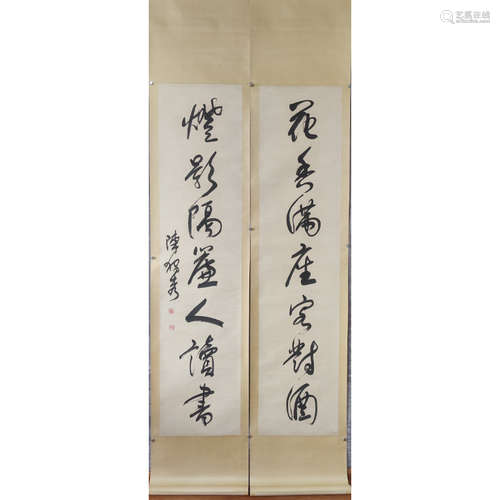 花香满座客對酒
燈影隔簾人讀書
陳独秀
艺典在线